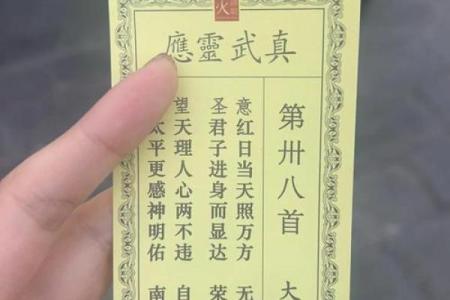 火
真武靈應
第卅八首 大
意红日当天照万方 无
圣君子进身而显达 荣
望天理人心两不违 自
太平更感神明佑 南